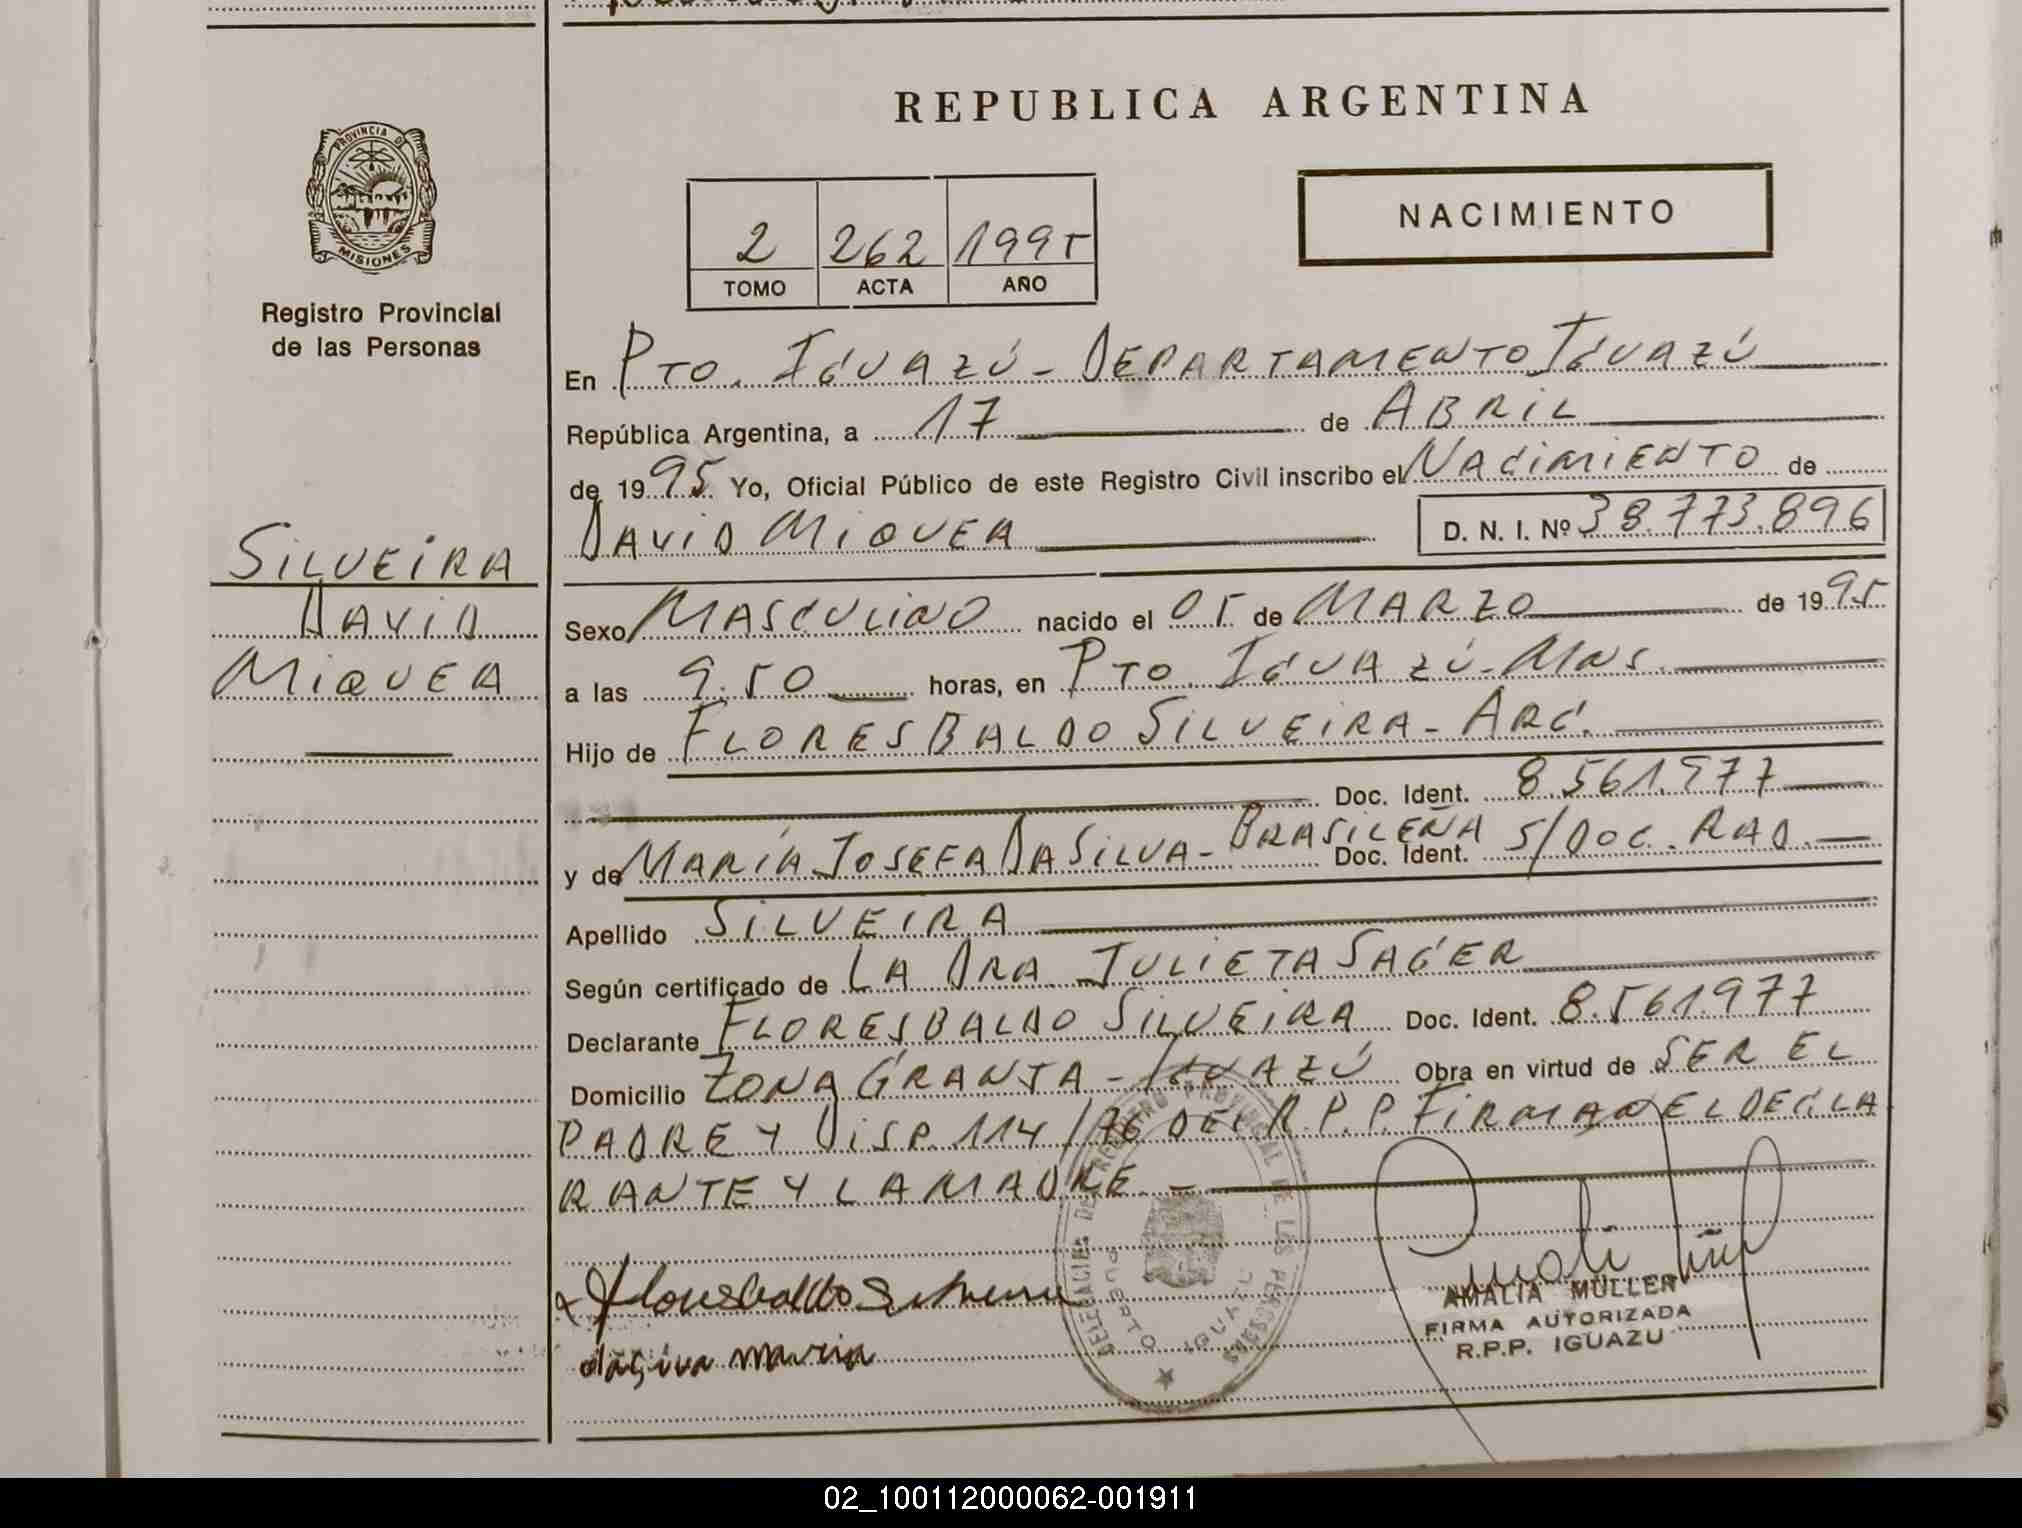 REPUBLICA ARGENTINA
PROVINCIA DE
MISIONES
Registro Provincial
de las Personas
NACIMIENTO
2 262 1995
TOMO ACTA AÑO
En Pto. Iguazú - Departamento Iguazú
República Argentina, a 17 de Abril
de 1995 Yo, Oficial Público de este Registro Civil inscribo el Nacimiento de
David Miquea D. N. I. Nº 38.773.896
Silveira
David
Miquea
Sexo Masculino nacido el 05 de Marzo de 1995
a las 9.50 horas, en Pto. Iguazú - Mns.
Hijo de Floresbaldo Silveira - Arg.
Doc. Ident. 8.561.977
y de María Josefa Da Silva - Brasileña Doc. Ident. S/Doc. Rad.
Apellido Silveira
Según certificado de La Dra Julieta Sager
Declarante Floresbaldo Silveira Doc. Ident. 8.561.977
Domicilio Zona Granja - Iguazú Obra en virtud de ser el
padre y Disp. 114/76 del R.P.P. Firman el decla
rante y la madre. -
DELEGACION DEL REGISTRO PROVINCIAL DE LAS PERSONAS
PUERTO IGUAZU
Floresbaldo Silveira
dasilva maria
AMALIA MÜLLER
FIRMA AUTORIZADA
R.P.P. IGUAZU
02_100112000062-001911